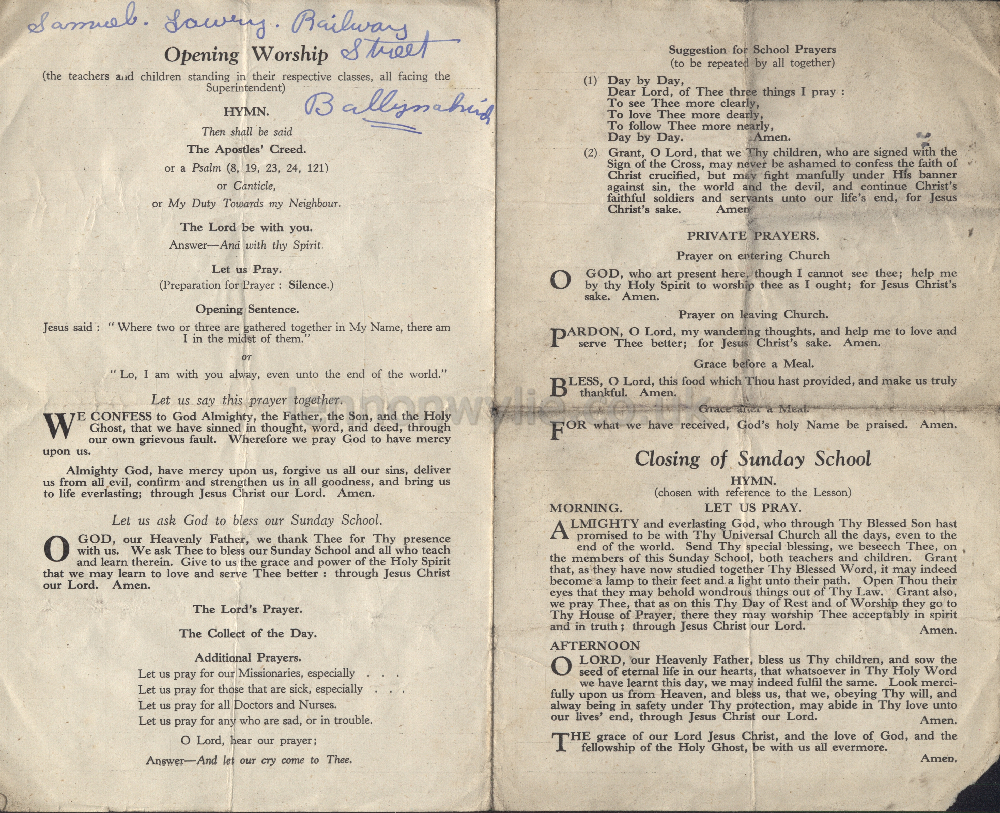 Samuel. Lowry. Railway
Street
Ballynahinch
Opening Worship
(the teachers and children standing in their respective classes, all facing the
Superintendent)
HYMN.
Then shall be said
The Apostles' Creed.
or a Psalm (8, 19, 23, 24, 121)
or Canticle,
or My Duty Towards my Neighbour.
The Lord be with you.
Answer—And with thy Spirit.
Let us Pray.
(Preparation for Prayer : Silence.)
Opening Sentence.
Jesus said : " Where two or three are gathered together in My Name, there am
I in the midst of them."
or
" Lo, I am with you alway, even unto the end of the world."
Let us say this prayer together.
WE CONFESS to God Almighty, the Father, the Son, and the Holy
Ghost, that we have sinned in thought, word, and deed, through
our own grievous fault. Wherefore we pray God to have mercy
upon us.
Almighty God, have mercy upon us, forgive us all our sins, deliver
us from all evil, confirm and strengthen us in all goodness, and bring us
to life everlasting; through Jesus Christ our Lord. Amen.
Let us ask God to bless our Sunday School.
O GOD, our Heavenly Father, we thank Thee for Thy presence
with us. We ask Thee to bless our Sunday School and all who teach
and learn therein. Give to us the grace and power of the Holy Spirit
that we may learn to love and serve Thee better : through Jesus Christ
our Lord. Amen.
The Lord's Prayer.
The Collect of the Day.
Additional Prayers.
Let us pray for our Missionaries, especially . . .
Let us pray for those that are sick, especially . . .
Let us pray for all Doctors and Nurses.
Let us pray for any who are sad, or in trouble.
O Lord, hear our prayer;
Answer—And let our cry come to Thee.
Suggestion for School Prayers
(to be repeated by all together)
(1) Day by Day,
Dear Lord, of Thee three things I pray :
To see Thee more clearly,
To love Thee more dearly,
To follow Thee more nearly,
Day by Day. Amen.
(2) Grant, O Lord, that we Thy children, who are signed with the
Sign of the Cross, may never be ashamed to confess the faith of
Christ crucified, but may fight manfully under His banner
against sin, the world and the devil, and continue Christ's
faithful soldiers and servants unto our life's end, for Jesus
Christ's sake. Amen
PRIVATE PRAYERS.
Prayer on entering Church
O GOD, who art present here, though I cannot see thee; help me
by thy Holy Spirit to worship thee as I ought; for Jesus Christ's
sake. Amen.
Prayer on leaving Church.
PARDON, O Lord, my wandering thoughts, and help me to love and
serve Thee better; for Jesus Christ's sake. Amen.
Grace before a Meal.
BLESS, O Lord, this food which Thou hast provided, and make us truly
thankful. Amen.
Grace after a Meal.
FOR what we have received, God's holy Name be praised. Amen.
Closing of Sunday School
HYMN.
(chosen with reference to the Lesson)
MORNING. LET US PRAY.
ALMIGHTY and everlasting God, who through Thy Blessed Son hast
promised to be with Thy Universal Church all the days, even to the
end of the world. Send Thy special blessing, we beseech Thee, on
the members of this Sunday School, both teachers and children. Grant
that, as they have now studied together Thy Blessed Word, it may indeed
become a lamp to their feet and a light unto their path. Open Thou their
eyes that they may behold wondrous things out of Thy Law. Grant also,
we pray Thee, that as on this Thy Day of Rest and of Worship they go to
Thy House of Prayer, there they may worship Thee acceptably in spirit
and in truth ; through Jesus Christ our Lord. Amen.
AFTERNOON
O LORD, our Heavenly Father, bless us Thy children, and sow the
seed of eternal life in our hearts, that whatsoever in Thy Holy Word
we have learnt this day, we may indeed fulfil the same. Look merci-
fully upon us from Heaven, and bless us, that we, obeying Thy will, and
alway being in safety under Thy protection, may abide in Thy love unto
our lives' end, through Jesus Christ our Lord. Amen.
THE grace of our Lord Jesus Christ, and the love of God, and the
fellowship of the Holy Ghost, be with us all evermore.
Amen.